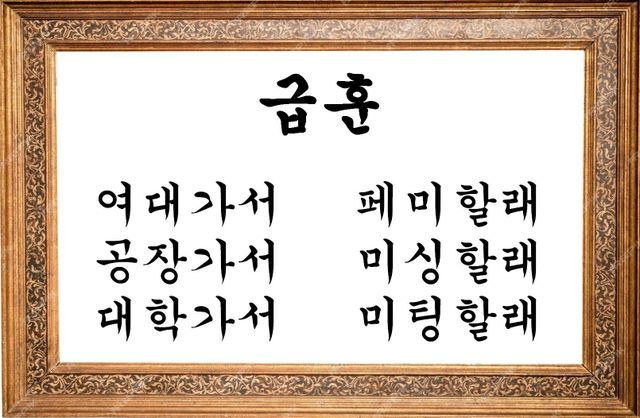 급훈
여대가서 페미할래
공장가서 미싱할래
대학가서 미팅할래